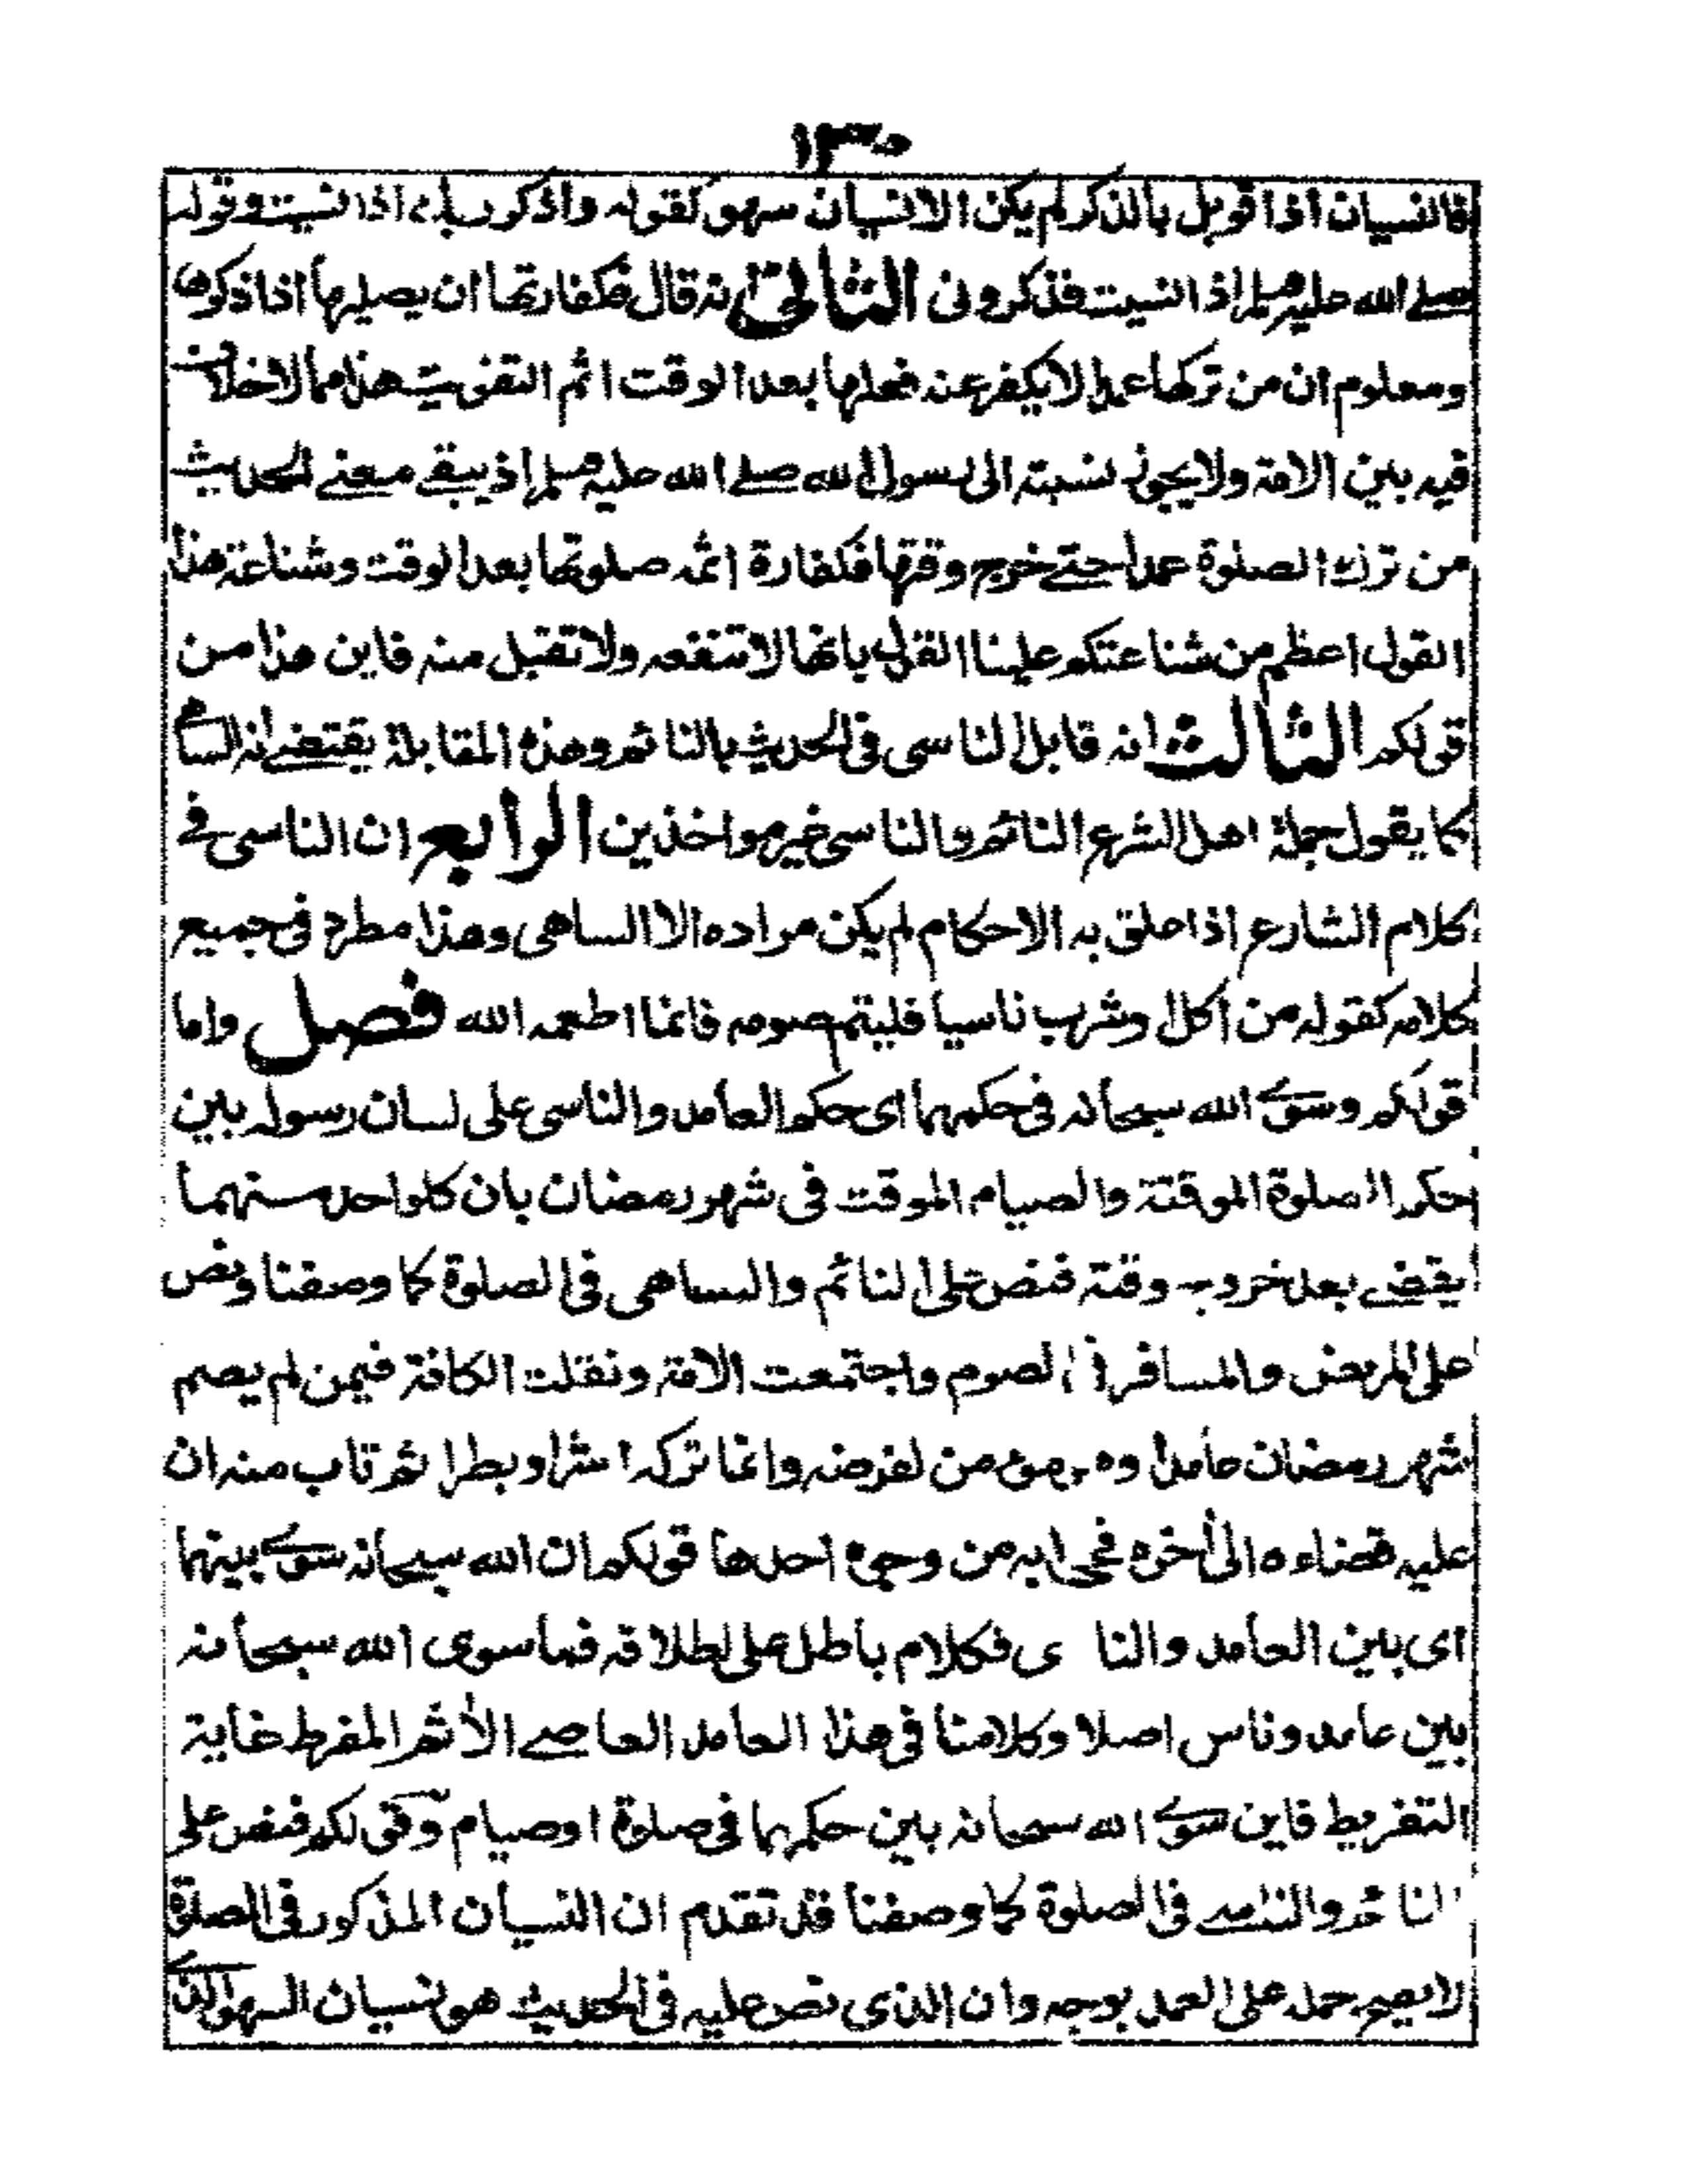 ١٣٠
فالنسيان اذا قوبل بالذكر لم يكن الا نسيان سهو كقوله واذكر ربك اذا نسيت وقوله
صلے الله عليه وسلم اذا نسيت فذكرونى الثانى انه قال فكفارتها ان يصليها اذا ذكرها
ومعلوم ان من تركها عمدا لا يكفر عنه فعلها بعد الوقت اثم التفويت هذا مما لا خلاف
فيه بين الامة ولا يجوز نسبته الى رسول الله صلے الله عليه وسلم اذ يبقے معنے الحديث
من ترك الصلوة عمدا حتے خرج وقتها فكفارة اثمه صلوتها بعد الوقت وشناعة هذا
القول اعظم من شناعتكم علينا القول بانها لا تنفعه ولا تقبل منه فاين هذا من
قولكم الثالث انه قابل الناسى فى الحديث بالنائم وهذه المقابلة يقتضے انه الساهى
كما يقول جملة اهل الشرع النائم والناسى غير مواخذين الرابع ان الناسى فے
كلام الشارع اذا علق به الاحكام لم يكن مراده الا الساهى وهذا مطرد فى جميع
كلامه كقوله من اكل او شرب ناسيا فليتم صومه فانما اطعمه الله فصل واما
قولكم وسوى الله سبحانه فى حكمهما اى حكم العامد والناسى على لسان رسوله بين
حكم الصلوة الموقتة والصيام الموقت فى شهر رمضان بان كلواحد منهما
يقضے بعد خروج وقته فنص على النائم والساهى فى الصلوة كما وصفنا ونص
على المريض والمسافر فى الصوم واجتمعت الامة ونقلت الكافة فيمن لم يصم
شهر رمضان عامدا وهو مومن لفرضه وانما تركه اشرا وبطرا ثم تاب منه ان
عليه قضاءه الى اخره فجوابه من وجوه احدها قولكم ان الله سبحانه سوى بينهما
اى بين العامد والنا ى فكلام باطل على اطلاقه فما سوى الله سبحانه
بين عامد وناس اصلا وكلامنا فى هذا العامد العاصے الاثم المفرط غاية
التفريط فاين سوى الله سبحانه بين حكمهما فى صلوة او صيام وقولكم فنص على
النائم والناسے فى الصلوة كما وصفنا قد تقدم ان النسيان المذكور فى الصلوة
لا يصح حمله على العمد بوجه وان الذى نص عليه فى الحديث هو نسيان السهو الذى